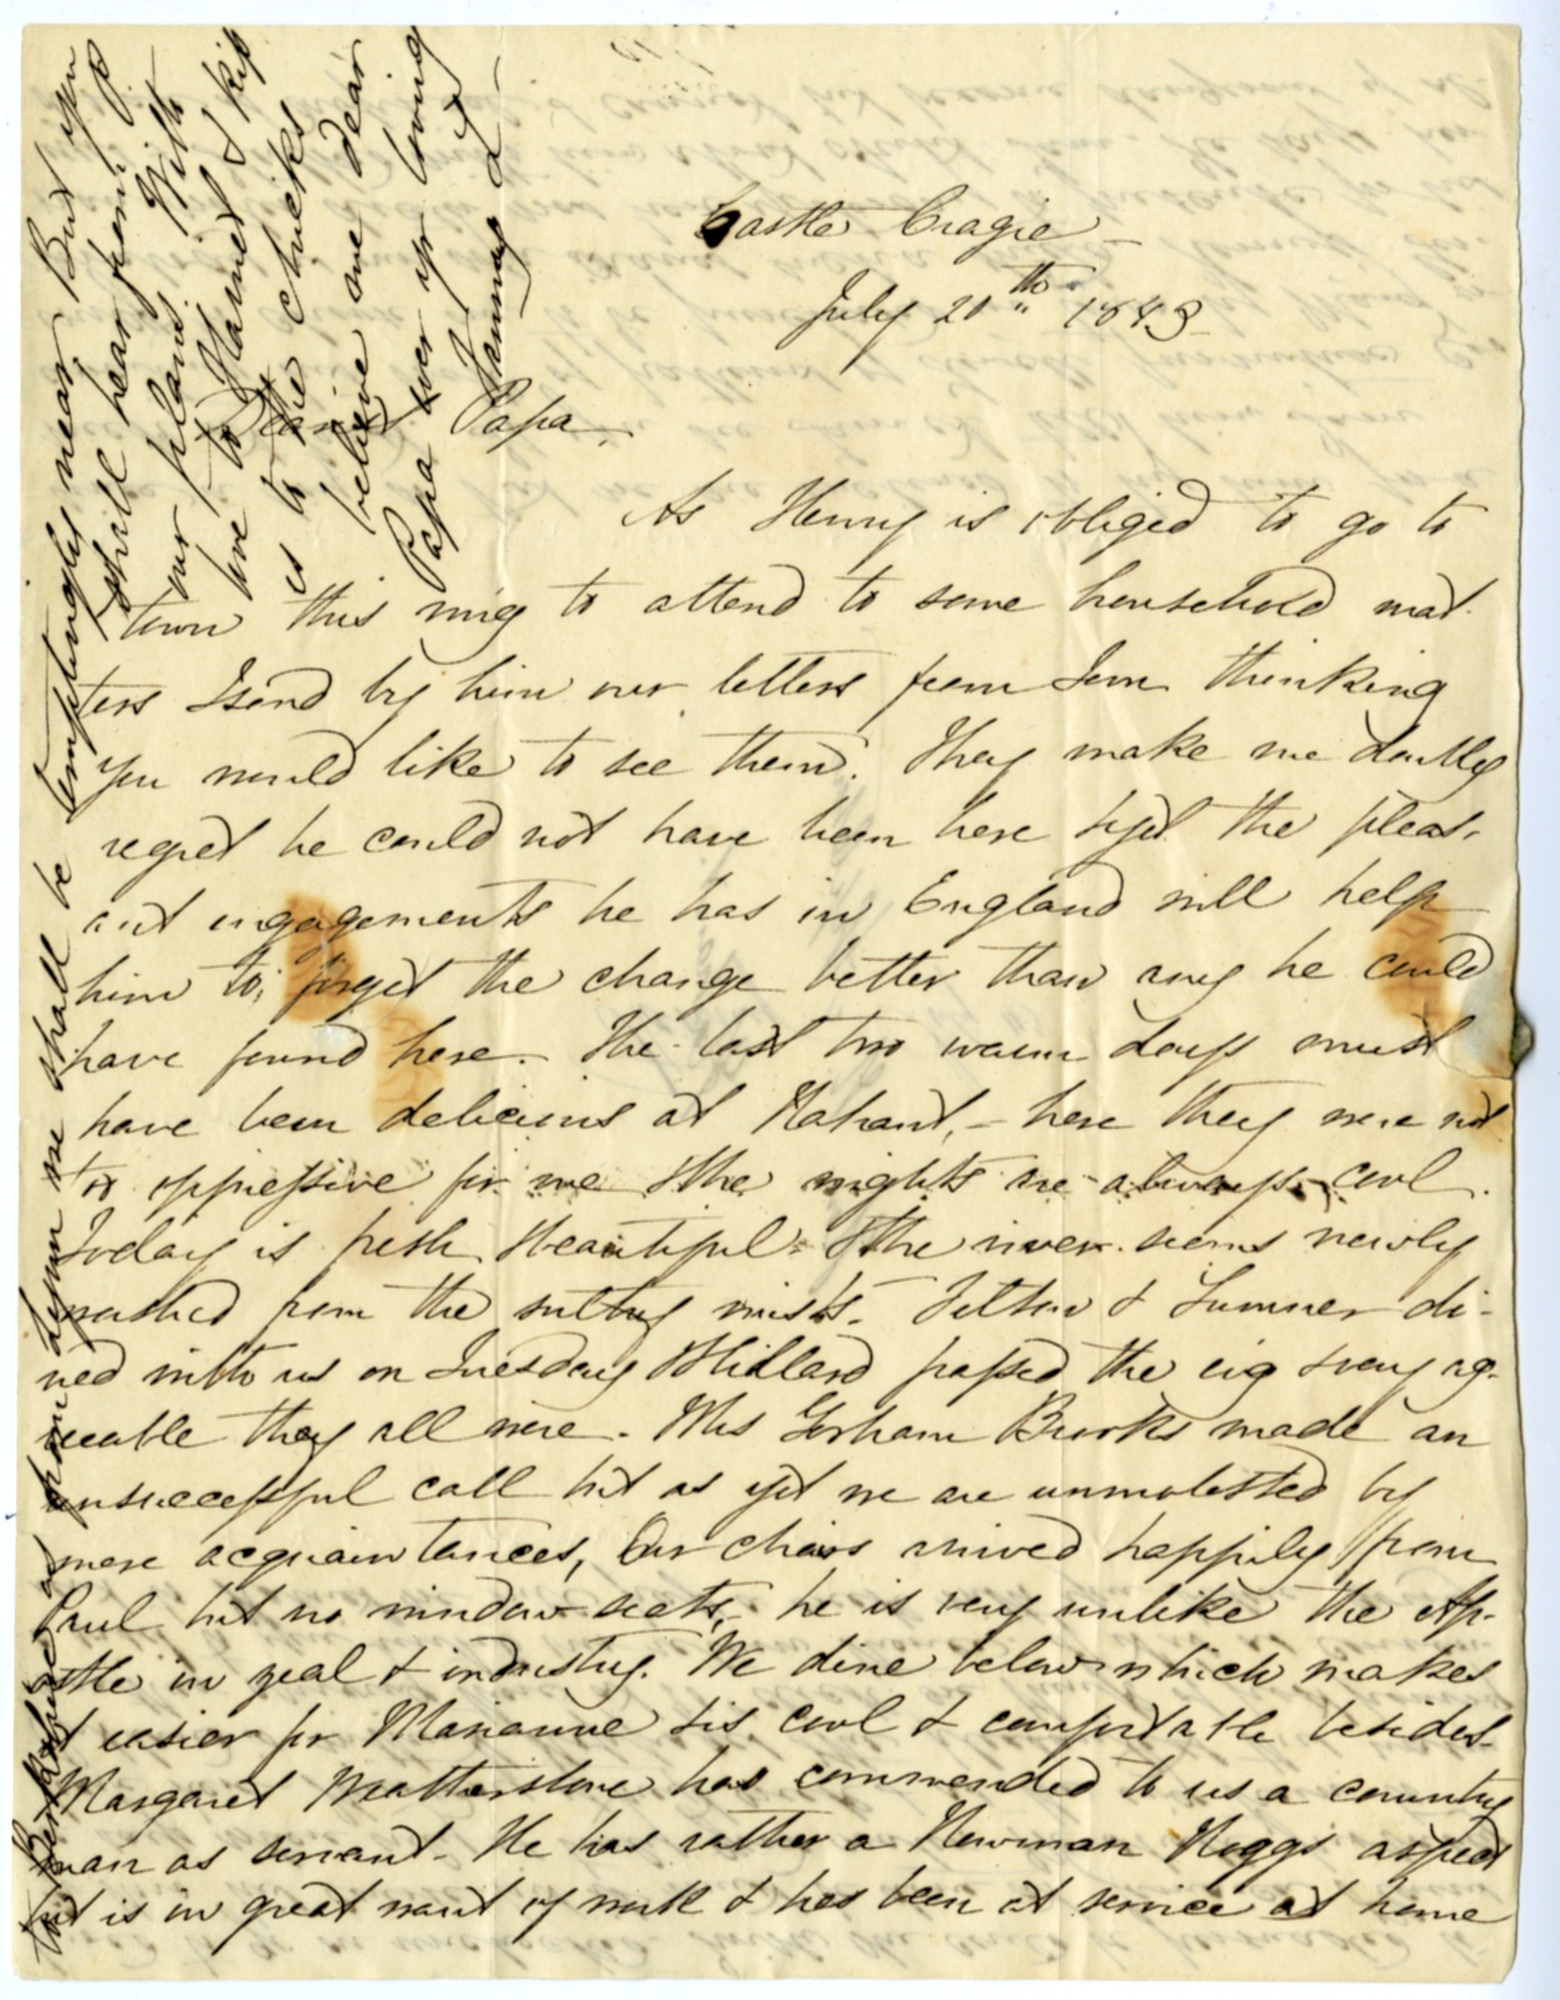 Castle Cragie –
July 20th 1843
Dearest Papa.
As Henry is obliged to go to
town this mng to attend to some household mat-
ters I send by him our letters from Tom thinking
you would like to see them. They make me doubly
regret he could not have been here tho' the pleas-
ant engagements he has in England will help
him to forget the change better than any he could
have found here. The last two warm days must
have been delicious at Nahant, – here they were not
too oppressive for me & the nights are always cool.
Today is fresh & beautiful – & the river seems newly
washed from the sultry mists. Felton & Sumner di-
ned with us on Tuesday & Hillard passed the evg & very ag-
reeable they all were. Mrs Gorham Brooks made an
unsuccessful call but as yet we are unmolested by
mere acquaintances, Our chairs arrived happily from
Paul but no window-seats, – he is very unlike the Ap-
ostle in zeal & industry. We dine below which makes
it easier for Marianne & is cool & comfortable besides.
Margaret has commended to us a country
man as servant. He has rather a Newman Noggs aspect
but is in great want of work & has been at service at home
from Lynn we shall be temptingly near But you
shall hear from
our plans. With
love to Harriet & kiss
es to the chicks
believe me dear
Papa ever yr loving
Fanny E L –